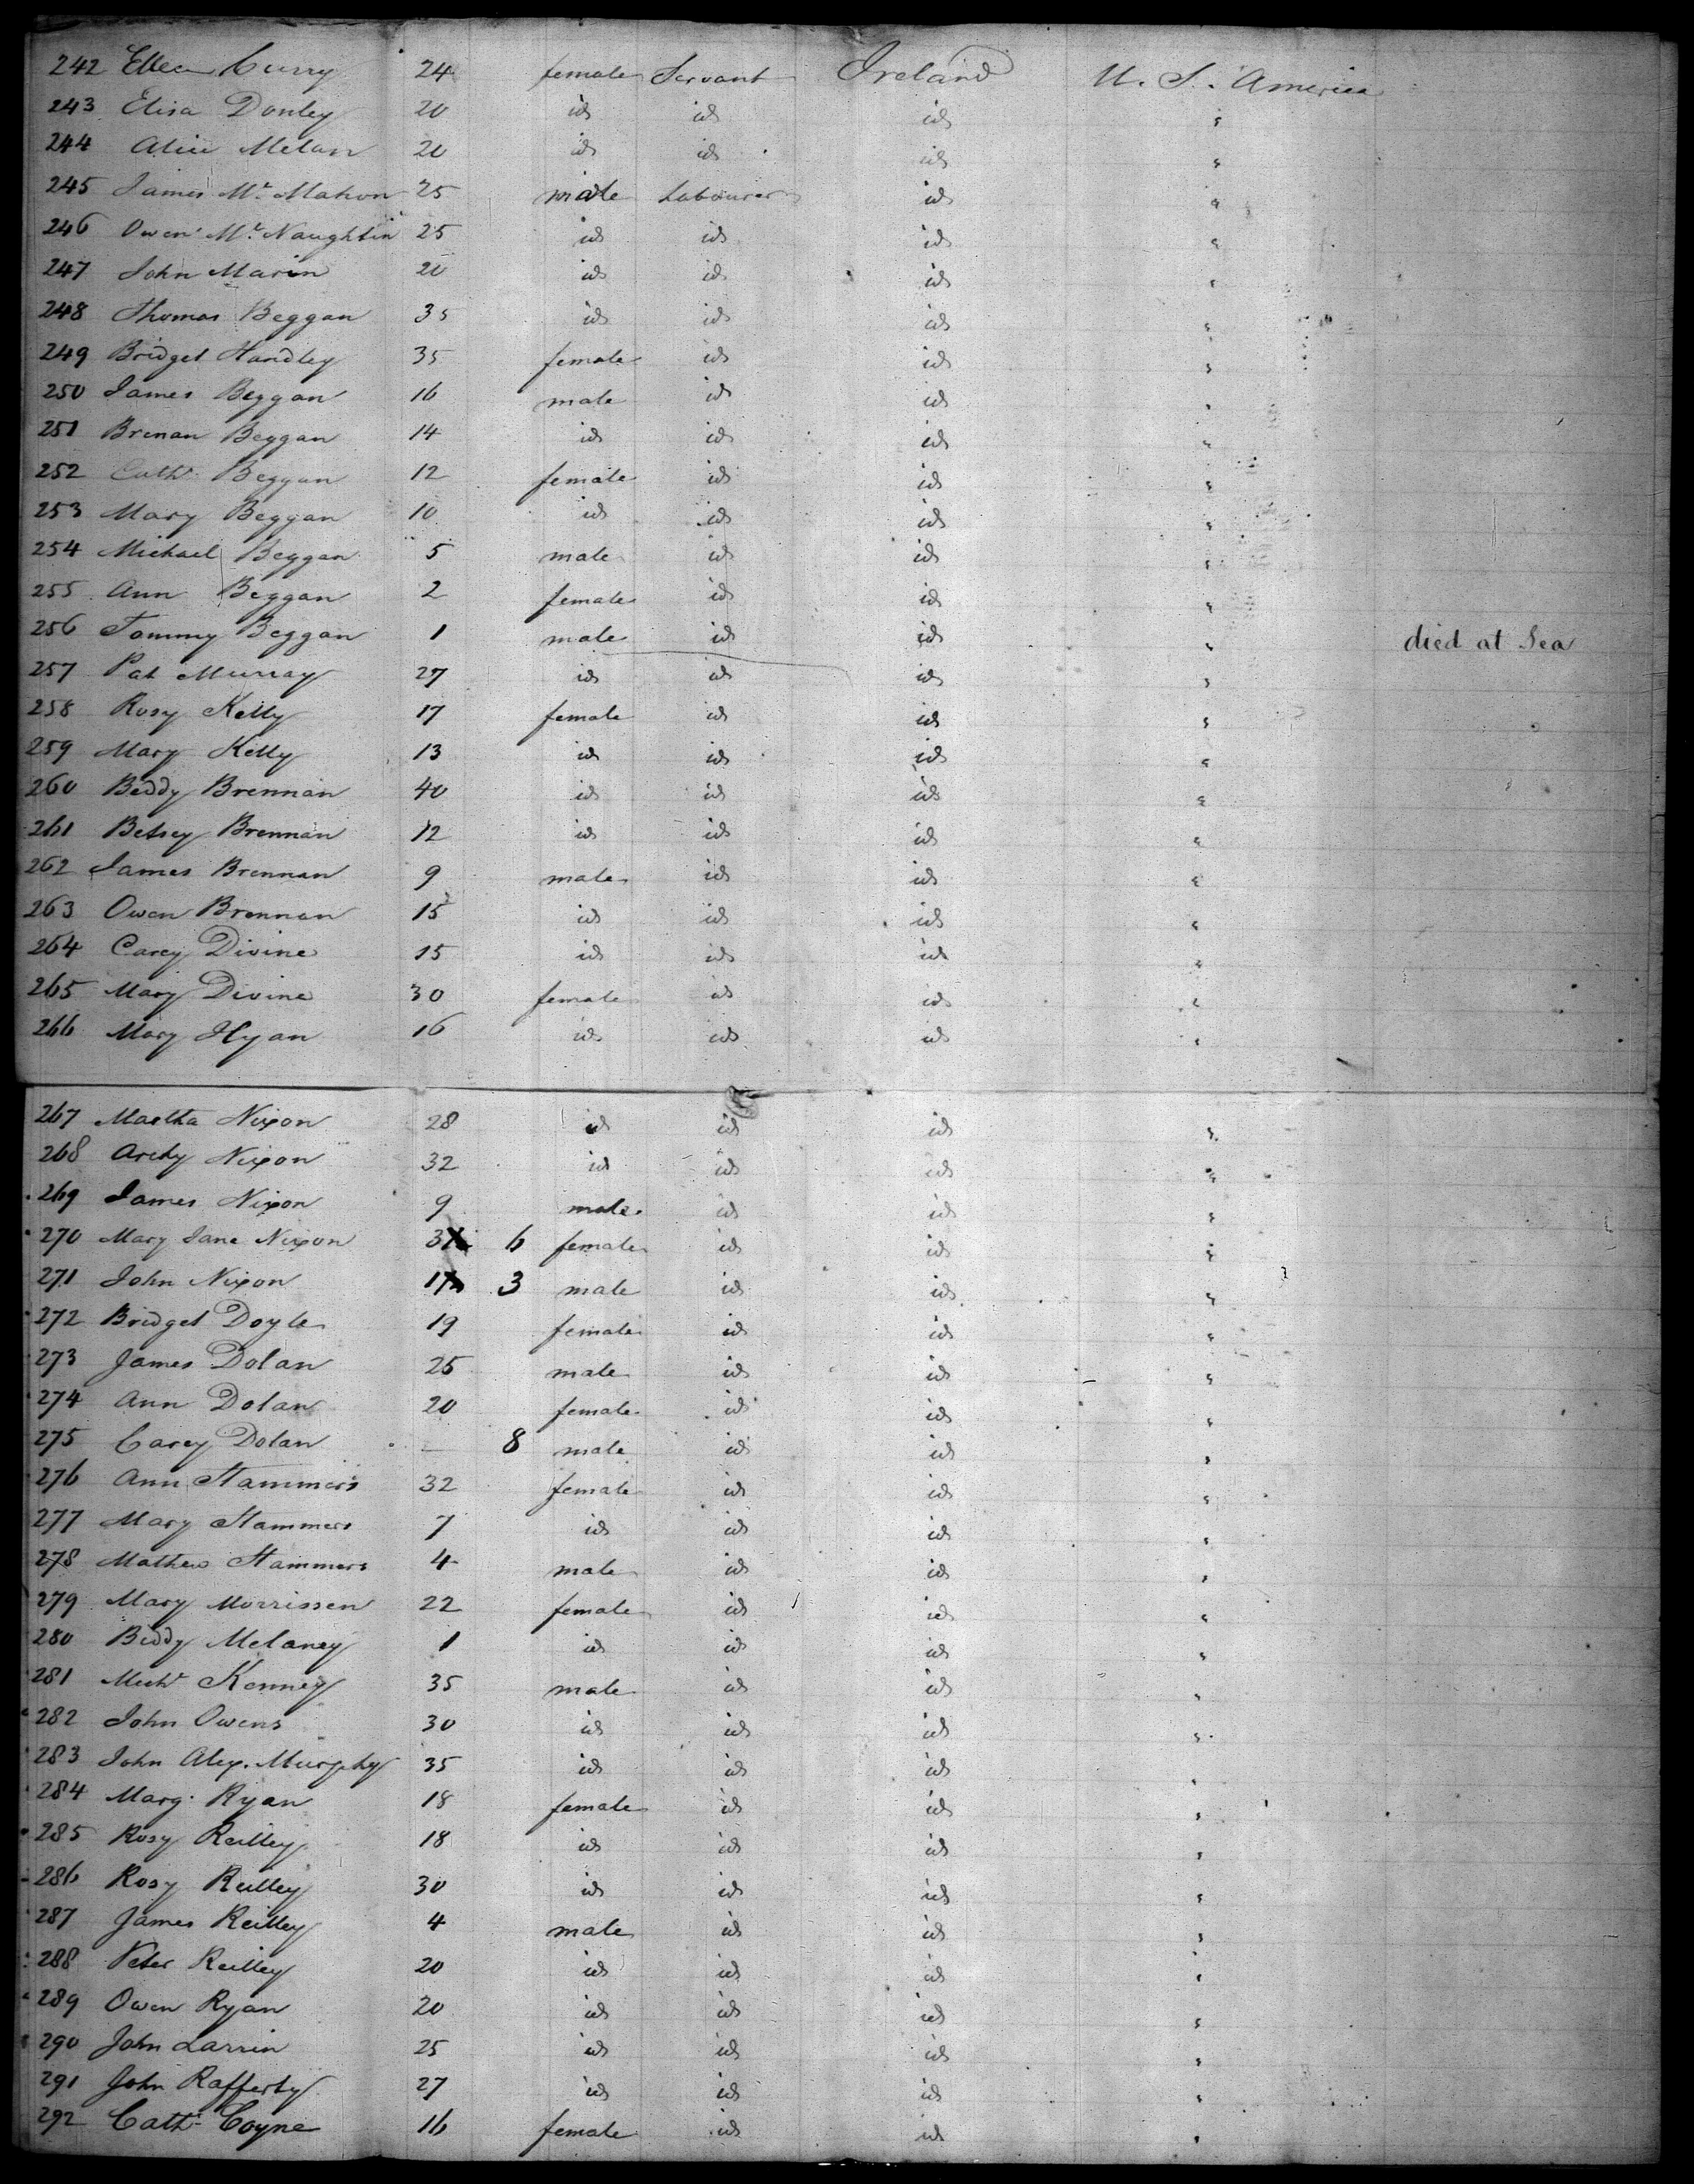 242 Ellen Curry 24 female Servant Ireland U. S. America
243 Elisa Donley 20 id id id "
244 Alice Melan 20 id id id "
245 James Mc Mahon 25 male Labourer id "
246 Owen Mc Naughtin 25 id id id "
247 John Marin 20 id id id "
248 Thomas Beggan 35 id id id "
249 Bridget Handley 35 female id id "
250 James Beggan 16 male id id "
251 Brenan Beggan 14 id id id "
252 Cath Beggan 12 female id id "
253 Mary Beggan 10 id id id "
254 Michael Beggan 5 male id id "
255 Ann Beggan 2 female id id "
256 Tommy Beggan 1 male id id " died at Sea
257 Pat Murray 27 id id id "
258 Rosy Kelly 17 female id id "
259 Mary Kelly 13 id id id "
260 Beddy Brennan 40 id id id "
261 Betsey Brennan 12 id id id "
262 James Brennan 9 male id id "
263 Owen Brennan 15 id id id "
264 Carey Divine 15 id id id "
265 Mary Divine 30 female id id "
266 Mary Hyan 16 id id id "
267 Martha Nixon 28 id id id "
268 Archy Nixon 32 id id id "
269 James Nixon 9 male id id "
270 Mary Jane Nixon 6 female id id "
271 John Nixon 3 male id id "
272 Bridget Doyle 19 female id id "
273 James Dolan 25 male id id "
274 Ann Dolan 20 female id id "
275 Carey Dolan — 8 male id id "
276 Ann Stammers 32 female id id "
277 Mary Stammers 7 id id id "
278 Mathew Stammers 4 male id id "
279 Mary Morrissen 22 female id id "
280 Biddy Melaney 1 id id id "
281 Michl Kenney 35 male id id "
282 John Owens 30 id id id "
283 John Alex. Murphy 35 id id id "
284 Marg. Ryan 18 female id id "
285 Rosy Reilley 18 id id id "
286 Rosy Reilley 30 id id id "
287 James Reilley 4 male id id "
288 Peter Reilley 20 id id id "
289 Owen Ryan 20 id id id "
290 John Larrin 25 id id id "
291 John Rafferty 27 id id id "
292 Cath Coyne 16 female id id "